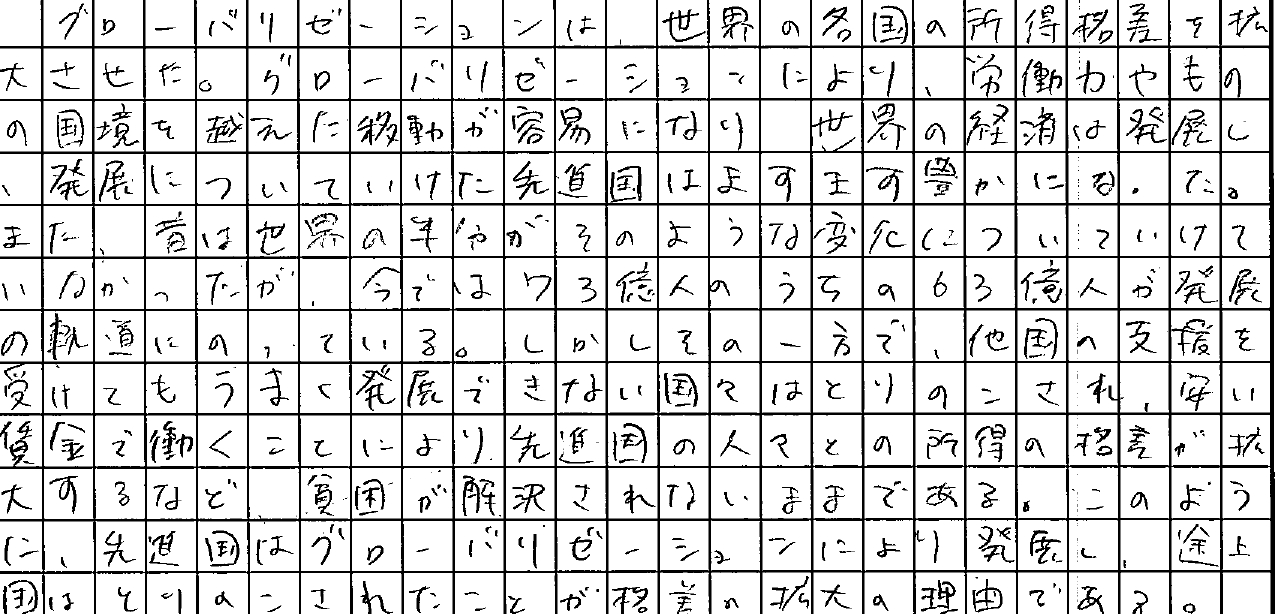 グローバリゼーションは、世界の各国の所得格差を拡
大させた。グローバリゼーションにより、労働力やもの
の国境を越えた移動が容易になり世界の経済は発展し
、発展についていけた先進国はますます豊かになった。
また、昔は世界の半分がそのような変化についていけて
いなかったが、今では73億人のうちの63億人が発展
の軌道にのっている。しかしその一方で、他国の支援を
受けてもうまく発展できない国々はとりのこされ、安い
賃金で働くことにより先進国の人々との所得の格差が拡
大するなど、貧困が解決されないままである。このよう
に、先進国はグローバリゼーションにより発展し、途上
国はとりのこされたことが格差の拡大の理由である。